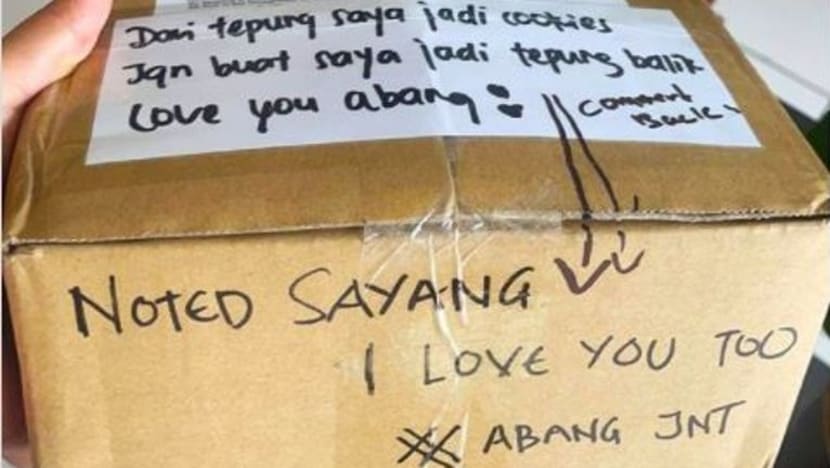 Dari tepung saya jadi cookies
Jgn buat saya jadi tepung balik
Love you abang
Comment
Back
NOTED SAYANG
I LOVE YOU TOO
ABANG JNT